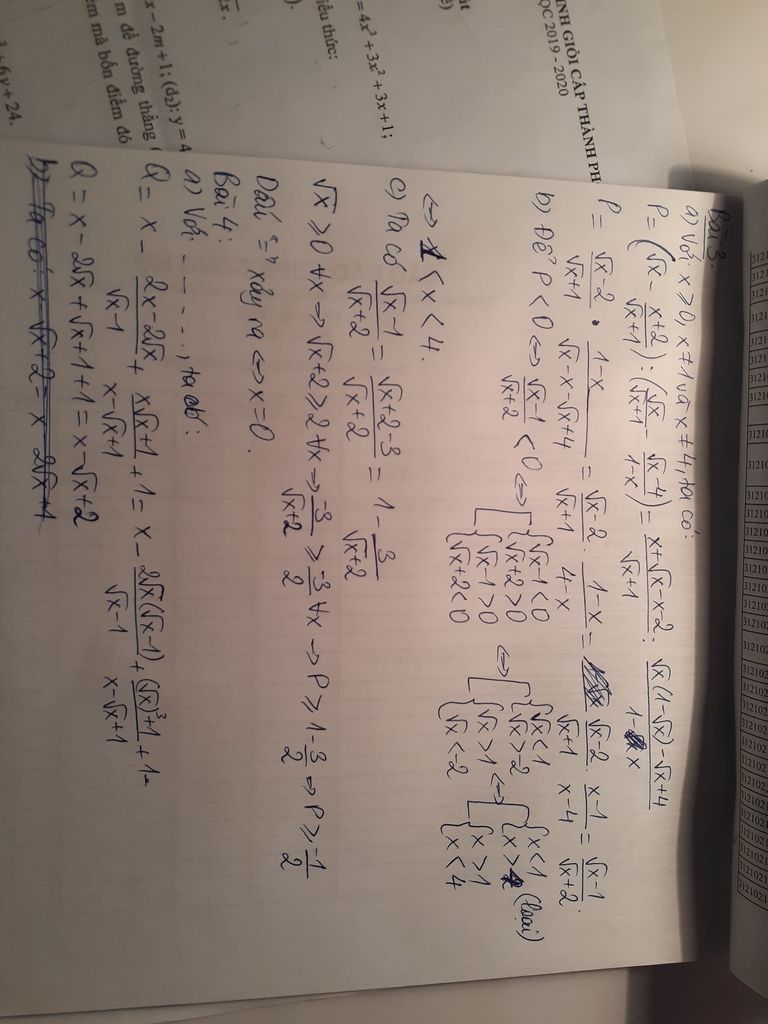 INH GIỎI CẤP THÀNH PH
ỌC 2019 - 2020
= 4x³ + 3x² + 3x + 1;
iểu thức:
x - 2m + 1; (d₂): y = 4
m để đường thẳng (
ểm mà bốn điểm đó
+ 6y + 24.
Bài 3:
a) Với x ≥ 0, x ≠ 1 và x ≠ 4, ta có:
P = (√x - (x+2)/(√x+1)) : (√x/(√x+1) - (√x-4)/(1-x)) = (x+√x-x-2)/(√x+1) : (√x(1-√x)-√x+4)/(1-x)
P = (√x-2)/(√x+1) . (1-x)/(√x-x-√x+4) = (√x-2)/(√x+1) . (1-x)/(4-x) = (√x-2)/(√x+1) . (x-1)/(x-4) = (√x-1)/(√x+2).
b) Để P < 0 ⇔ (√x-1)/(√x+2) < 0 ⇔ [ { √x-1<0 { √x+2>0 { √x-1>0 { √x+2<0 ⇔ [ { √x<1 { √x>-2 { √x>1 { √x<-2 ⇔ [ { x<1 { x>4 (loại) { x>1 { x<4
⇔ 1 < x < 4.
c) Ta có (√x-1)/(√x+2) = (√x+2-3)/(√x+2) = 1 - 3/(√x+2)
√x ≥ 0 ∀x ⇒ √x+2 ≥ 2 ∀x ⇒ -3/(√x+2) ≥ -3/2 ∀x ⇒ P ≥ 1 - 3/2 ⇒ P ≥ -1/2
Dấu "=" xảy ra ⇔ x = 0.
Bài 4:
a) Với - - - - -, ta có:
Q = x - (2x-2√x)/(√x-1) + (x√x+1)/(x-√x+1) + 1 = x - (2√x(√x-1))/(√x-1) + ((√x)³+1)/(x-√x+1) + 1
Q = x - 2√x + √x + 1 + 1 = x - √x + 2
b) Ta có: x - √x + 2 = x - 2√x + 1